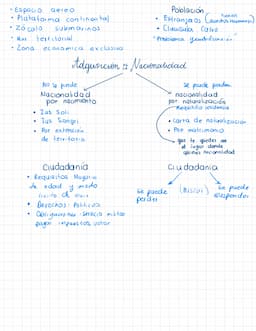 • Espacio aereo
• Plataforma continental
• Zócalo submarinos
• Mar territorial
• Zona economica exclusiva
Población
• Extranjeros
• Clausula Calvo
Adquisición Nacionalidad
No se puede
Nacionalidad
por nacimiento
• Ius Soli
• Ius Sangui
• Por extensión
de territorio
Se puede perder
nacionalidad
por naturalización
Requisitos residencia
• Carta de naturalización
• Por matrimonio
que te quedes en
el lugar donde
Ciudadanía
• Requisitos Mayoria
de edad y modo
• Derechos: Politicos
• Obligaciones: servicio militar
pagar impuestos, votar
Ciudadania
Se puede
perder
Se puede
suspender